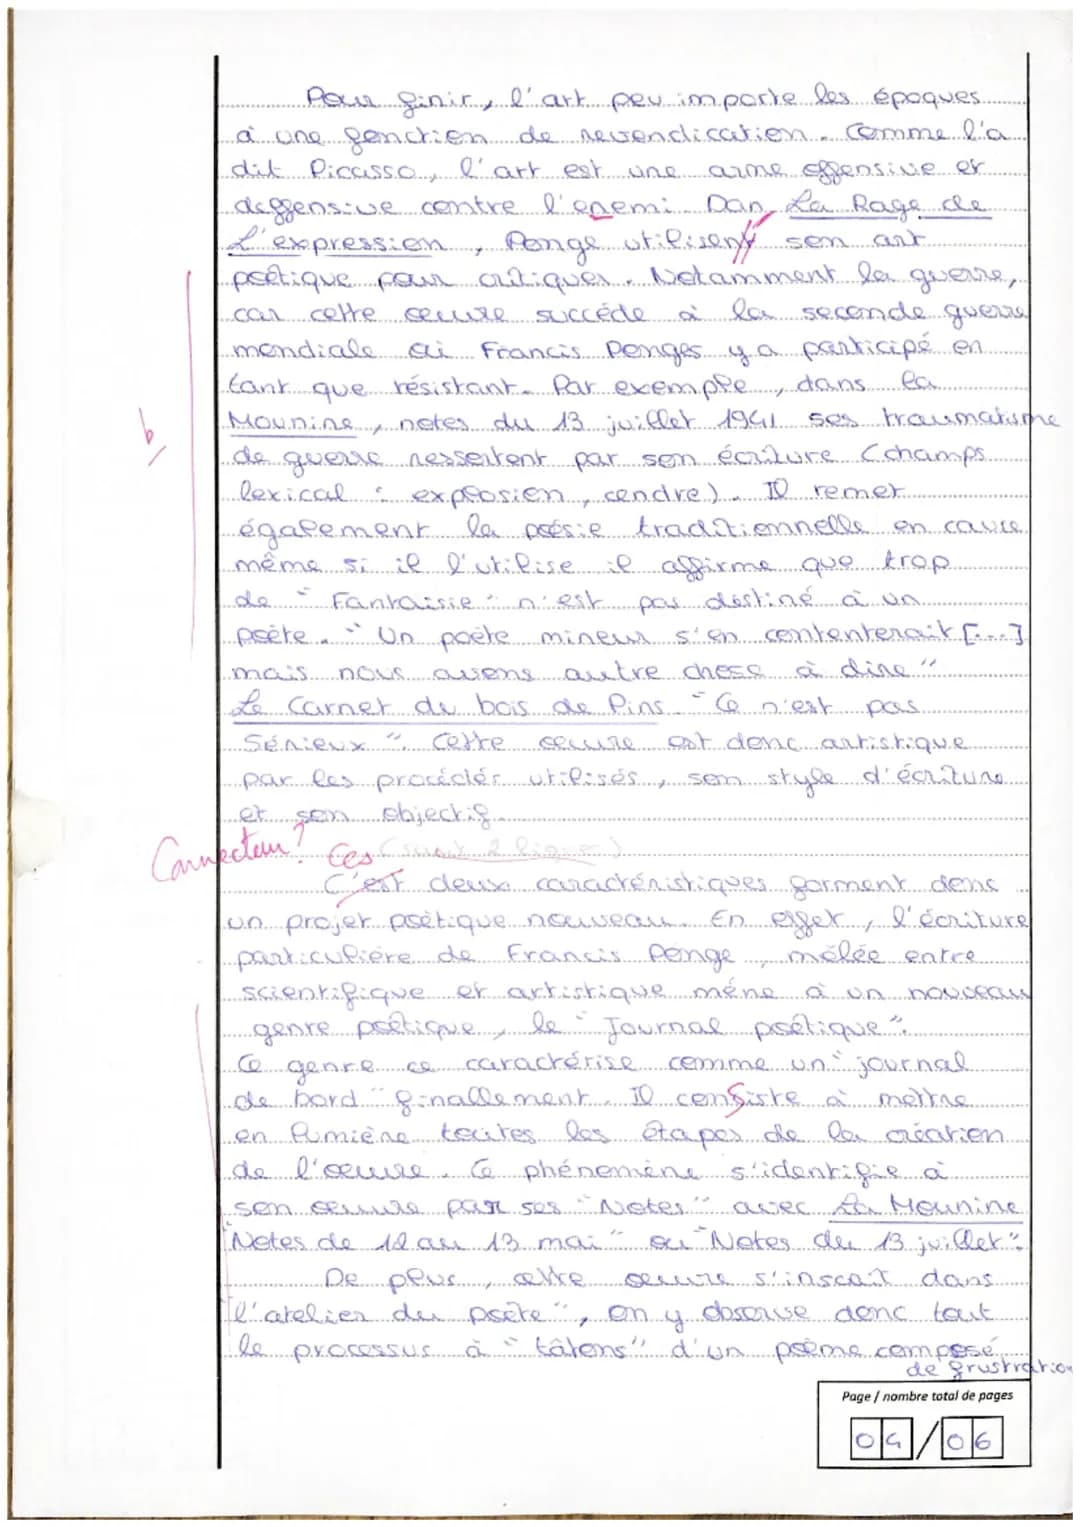 Pour finir, l'art peu importe les époques
a une fonction de revendication. Comme l'a
dit Picasso, l'art est une arme offensive et
deffensive contre l'enemi. Dan La Rage de
L'expression, Ponge utilisent son art
poétique pour critiquer. Notamment la guerre,
car cette œuvre succéde à la seconde guerre
mondiale où Francis Ponges y a participé en
tant que résistant. Par exemple, dans la
Mounine, notes du 13 juillet 1941 ses traumatisme
b
de guerre ressortent par son écriture (champs
lexical : explosion, cendre). Il remet
également la poésie traditionnelle en cause
même si il l'utilise il affirme que trop
de "Fantaisie" n'est pas destiné à un
poète. "Un poète mineur s'en contenterait [...]
mais nous avons autre chose à dire"
Le Carnet du bois de Pins "Ce n'est pas
Sérieux". Cette œuvre est donc artistique
par les procédés utilisés, son style d'écriture
et son objectif.
Connecteur? Ces (saut 2 lignes)
C'est deux caractéristiques forment donc
un projet poètique nouveau. En effet, l'écriture
particulière de Francis Ponge, mélée entre
scientifique et artistique méne à un nouveau
genre poètique, le "Journal poétique".
Ce genre ce caractérise comme un "journal
de bord" finallement. Il consiste à mettre
en lumière toutes les étapes de la création
de l'œuvre. Ce phénomène s'identifie à
son œuvre par ses "Notes" avec La Mounine
Notes de 12 au 13 mai" ou "Notes du 13 juillet".
De plus, cette œuvre s'inscrit dans
l'atelier du poète", on y observe donc tout
le processus à "tâtons" d'un poème composé
de frustration
Page / nombre total de pages
04/06